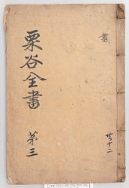 栗谷全書
第三
共十二